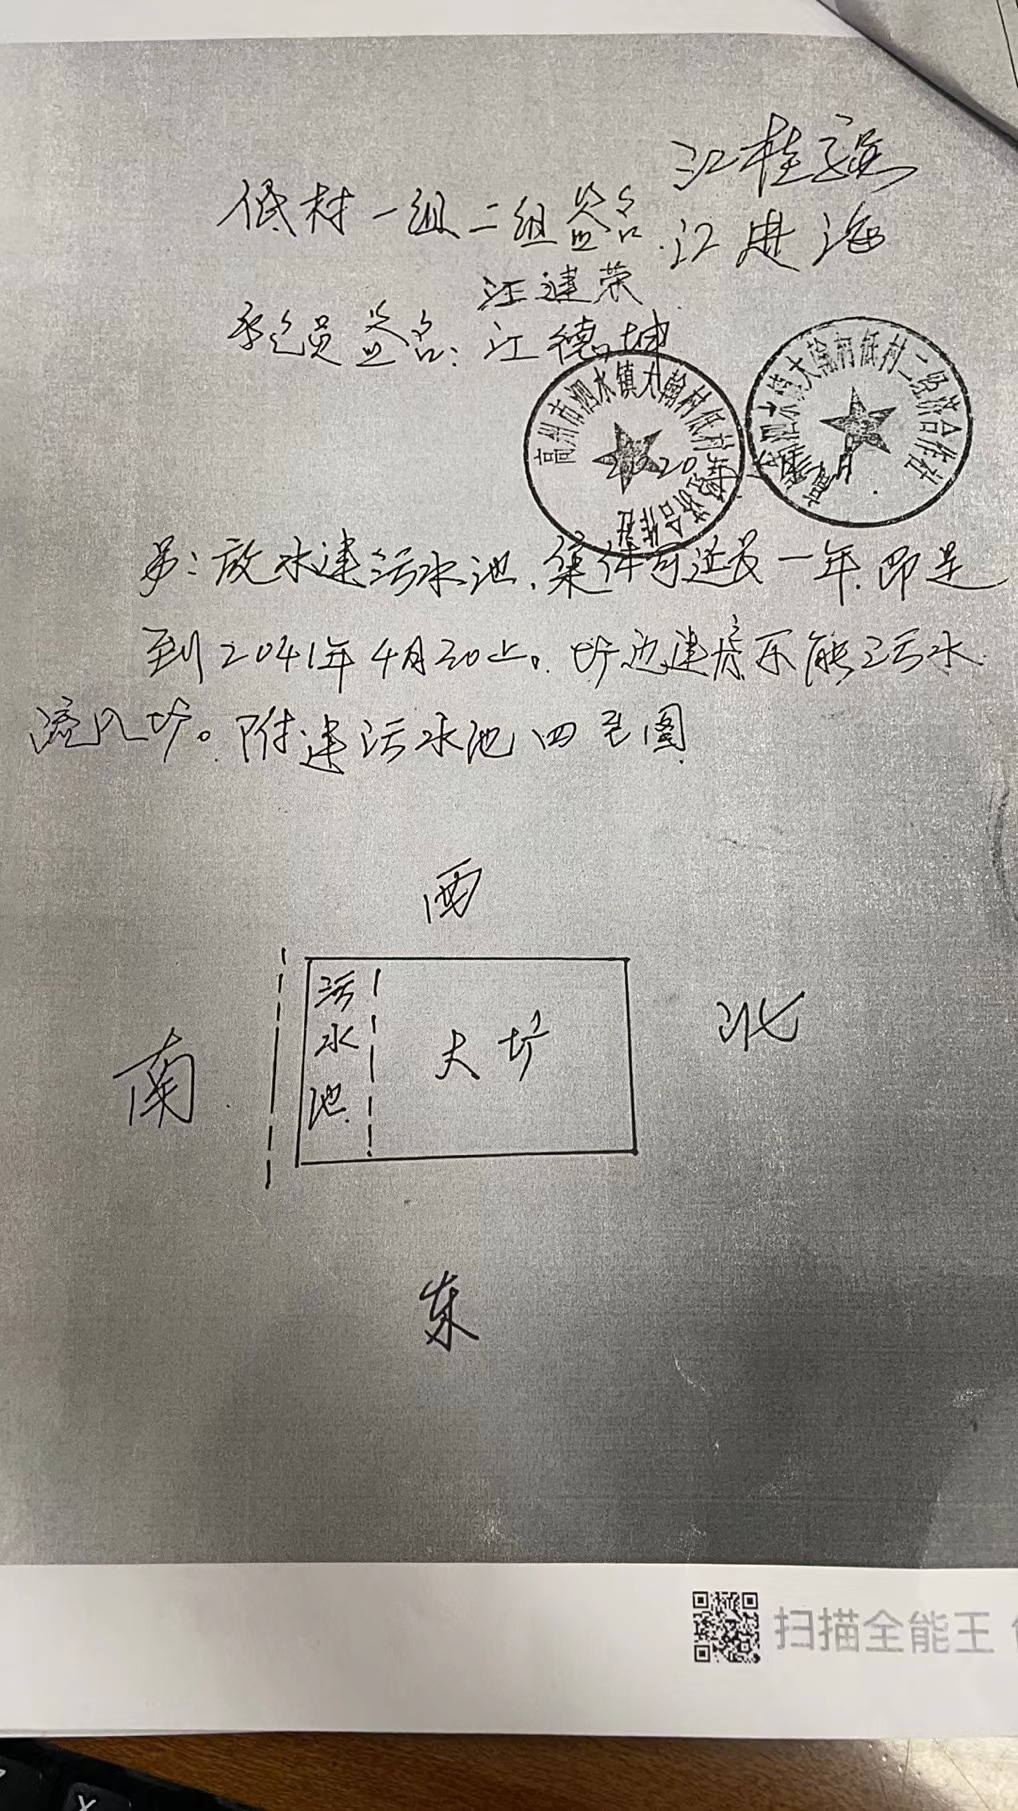 江桂
低村一组二组签名
江进海
江建荣
承包员签名:江德坤
高州市泗水镇大翰村低村 经济合作社
泗水镇大翰村低村二经济合作社
2020年 月
另:放水建污水池.集体可延长一年.即是
到2041年4月30止。圹边建房不能已污水
流入圹。附建污水池四至图
西
南
污水池
大圹
北
东
扫描全能王